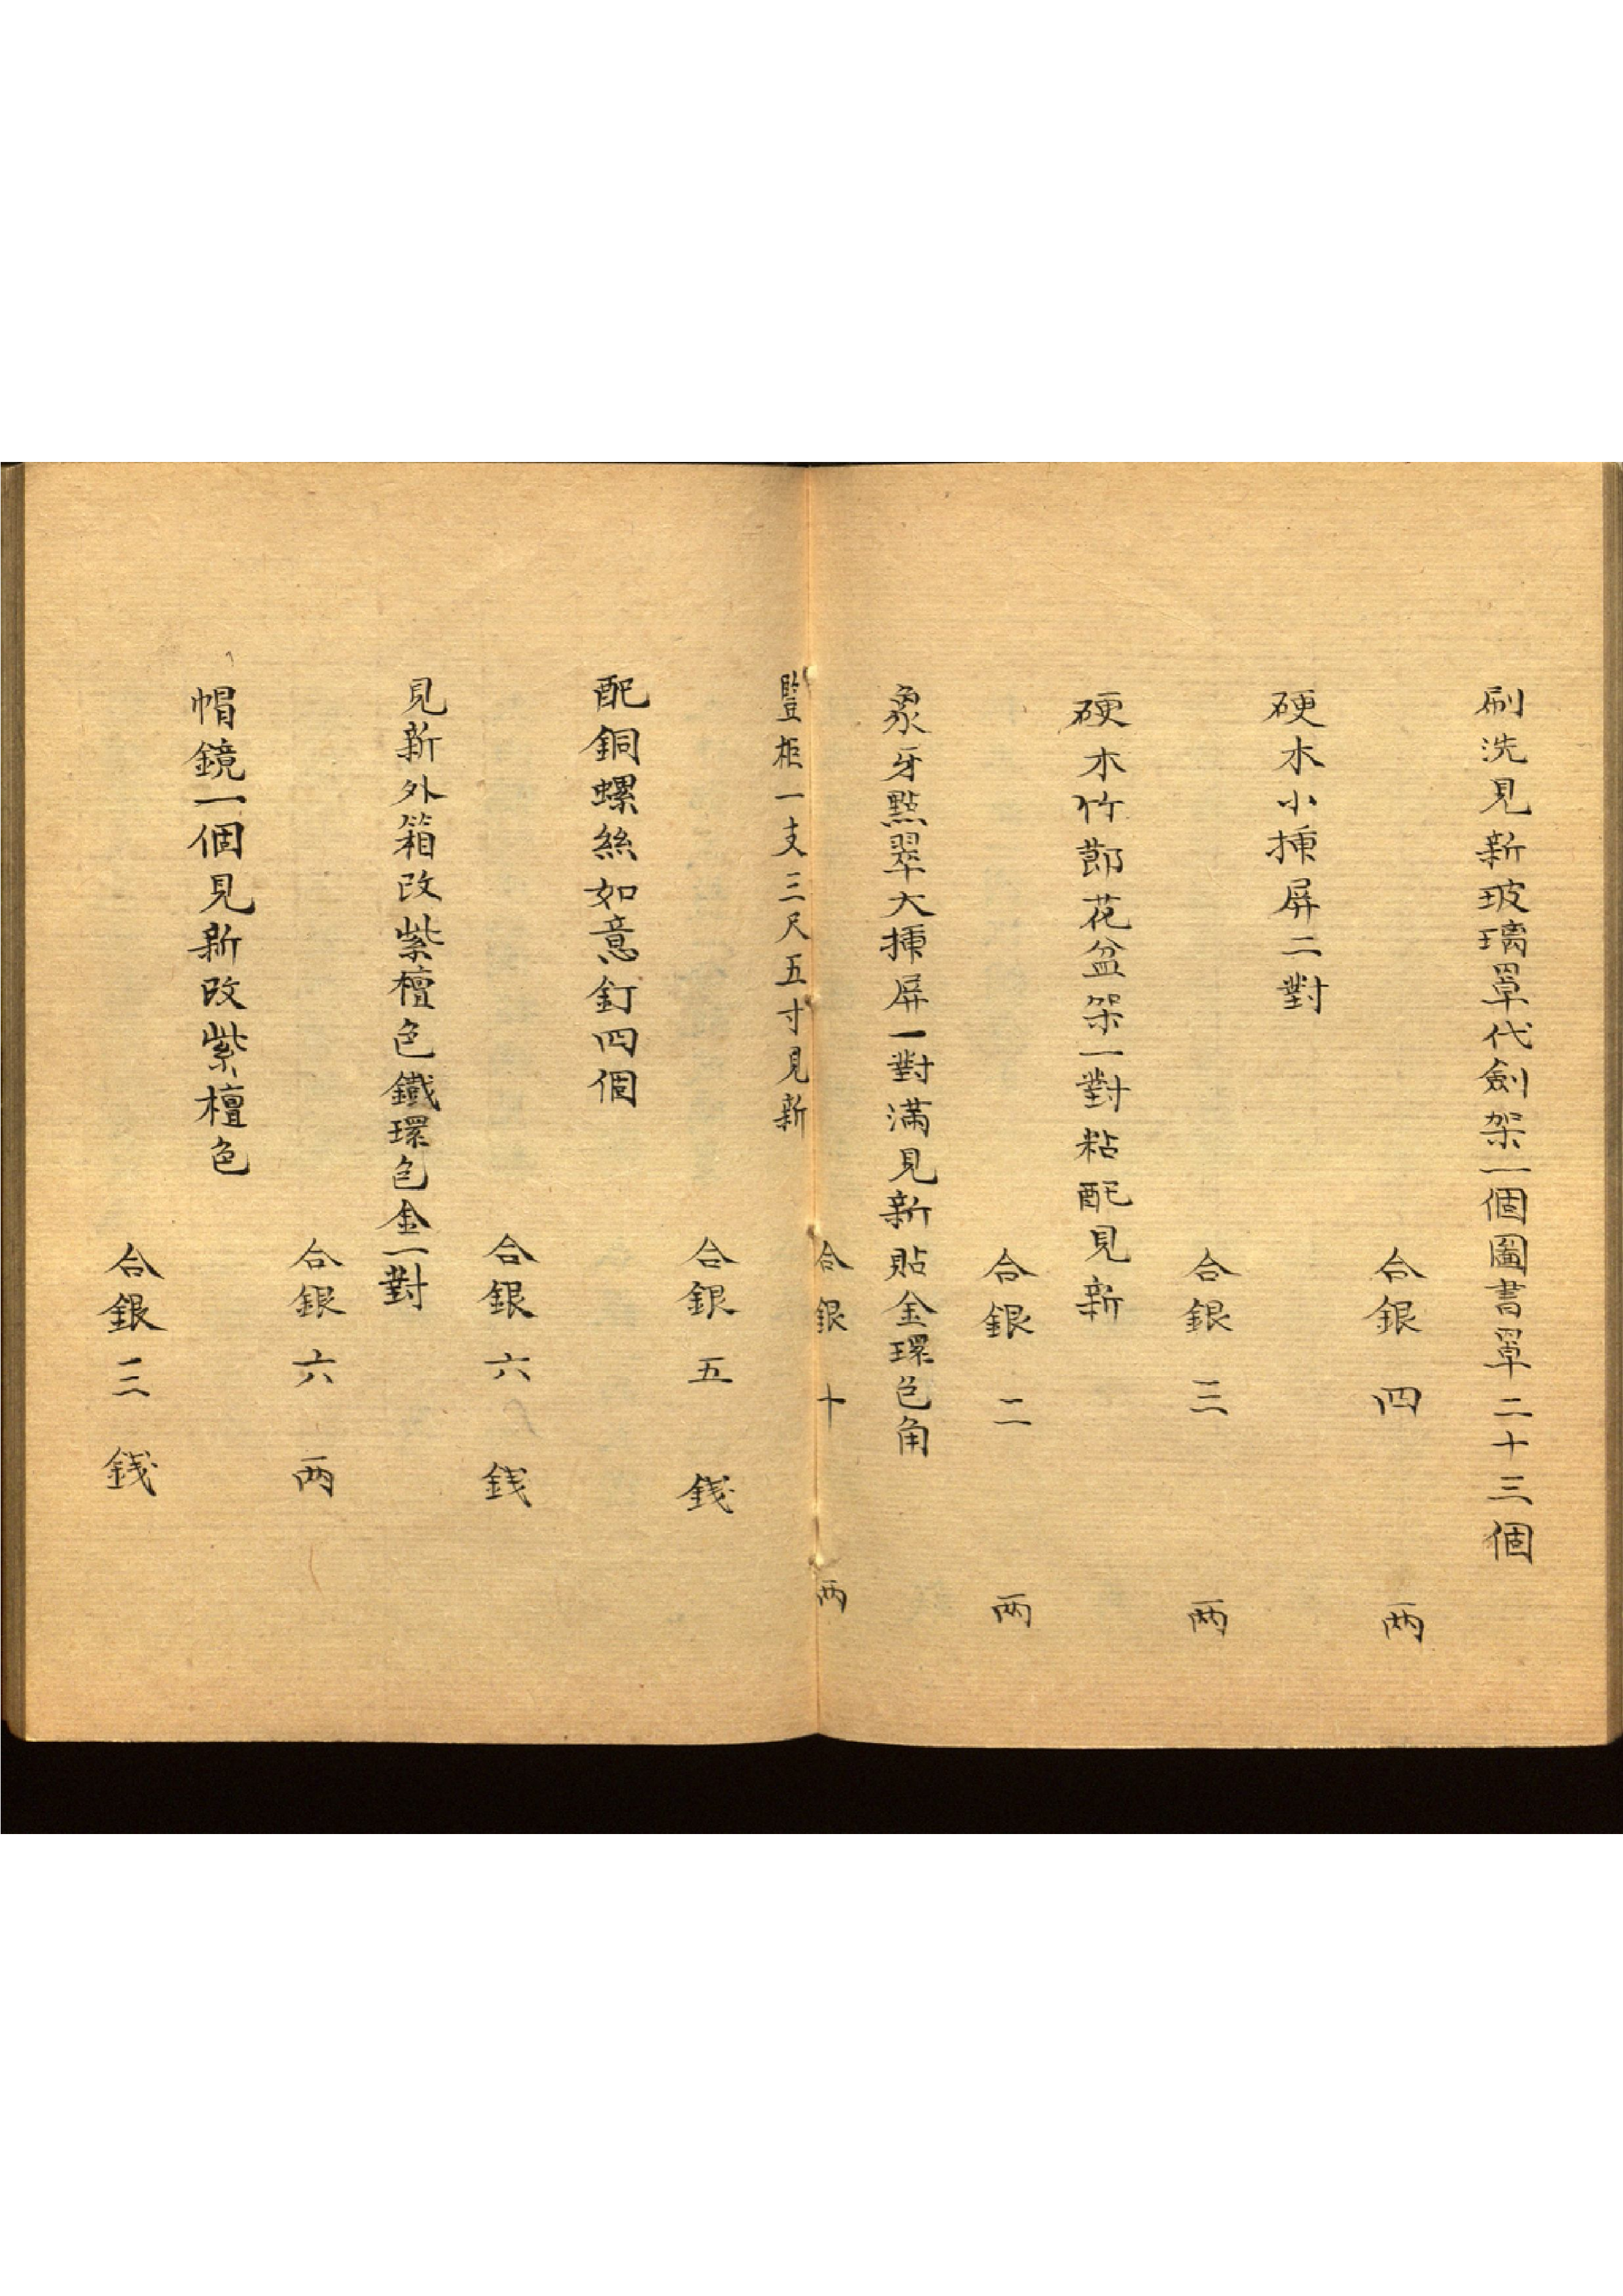 刷洗見新玻璃罩代劍架一個圖書罩二十三個
合銀四兩
硬木小揷屏二對
合銀三兩
硬木竹節花盆架一對粘配見新
合銀二兩
象牙點翠大揷屏一對滿見新貼金環包角
合銀十兩
豎柜一支三尺五寸見新
合銀五錢
配銅螺絲如意釘四個
合銀六錢
見新外箱改紫檀色鐵環包金一對
合銀六兩
帽鏡一個見新改紫檀色
合銀三錢